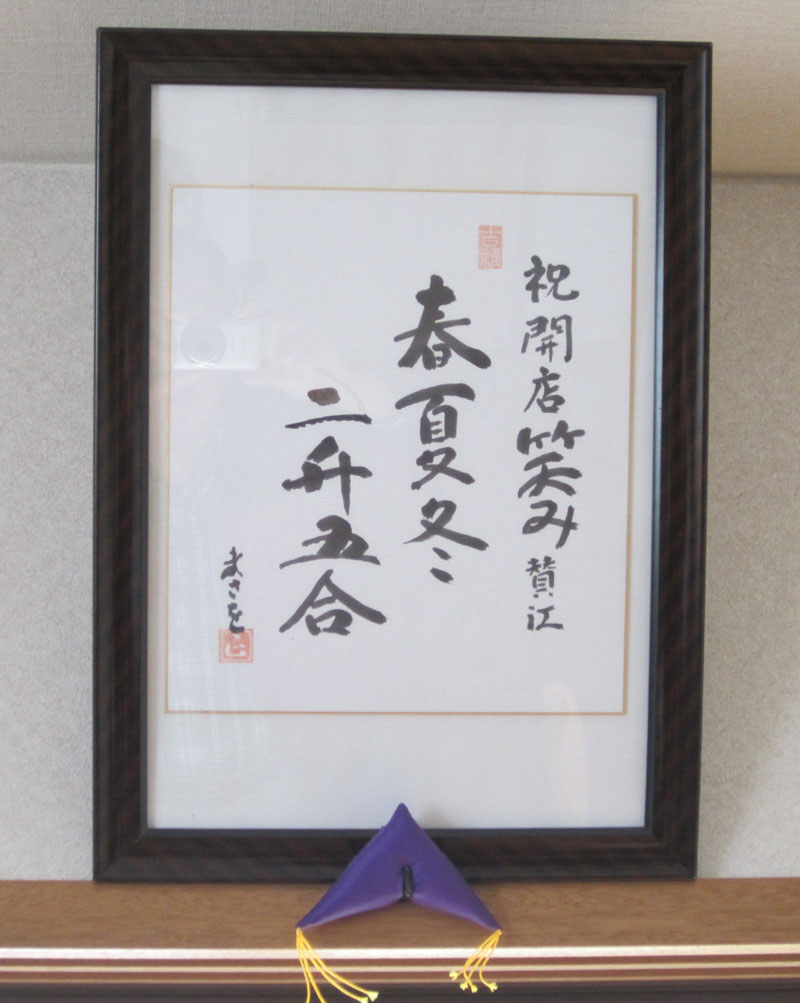 祝開店笑み賛江
春夏冬
二升五合
まさを